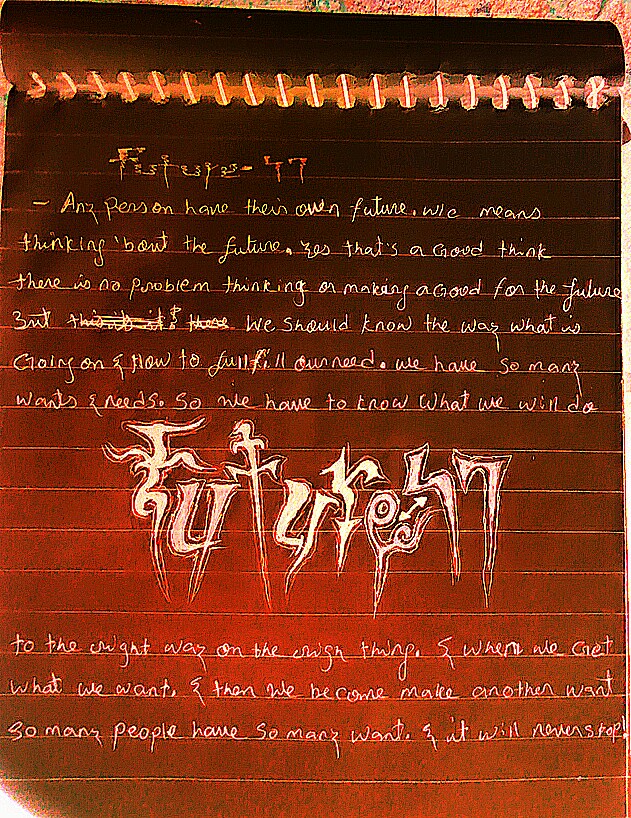 Future - 47
- Any person have their own future. We means
thinking 'bout the future. yes that's a Good think
there is no problem thinking or making a Good for the future
But we should know the way what is
Going on & How to fullfill our need. we have so many
wants & needs. So we have to know what we will do
Future 47
to the wright way on the wrigh thing. & when we Get
what we want. & then we become make another want
So many people have so many want. & it will never stop!